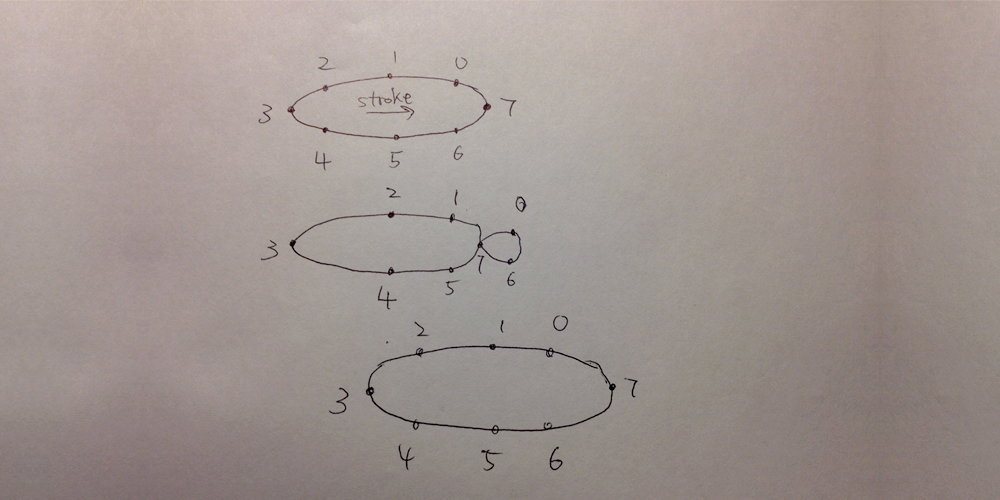 2 1 0
3 stroke 7
4 5 6
2 1 0
3 7
4 5 6
2 1 0
3 7
4 5 6